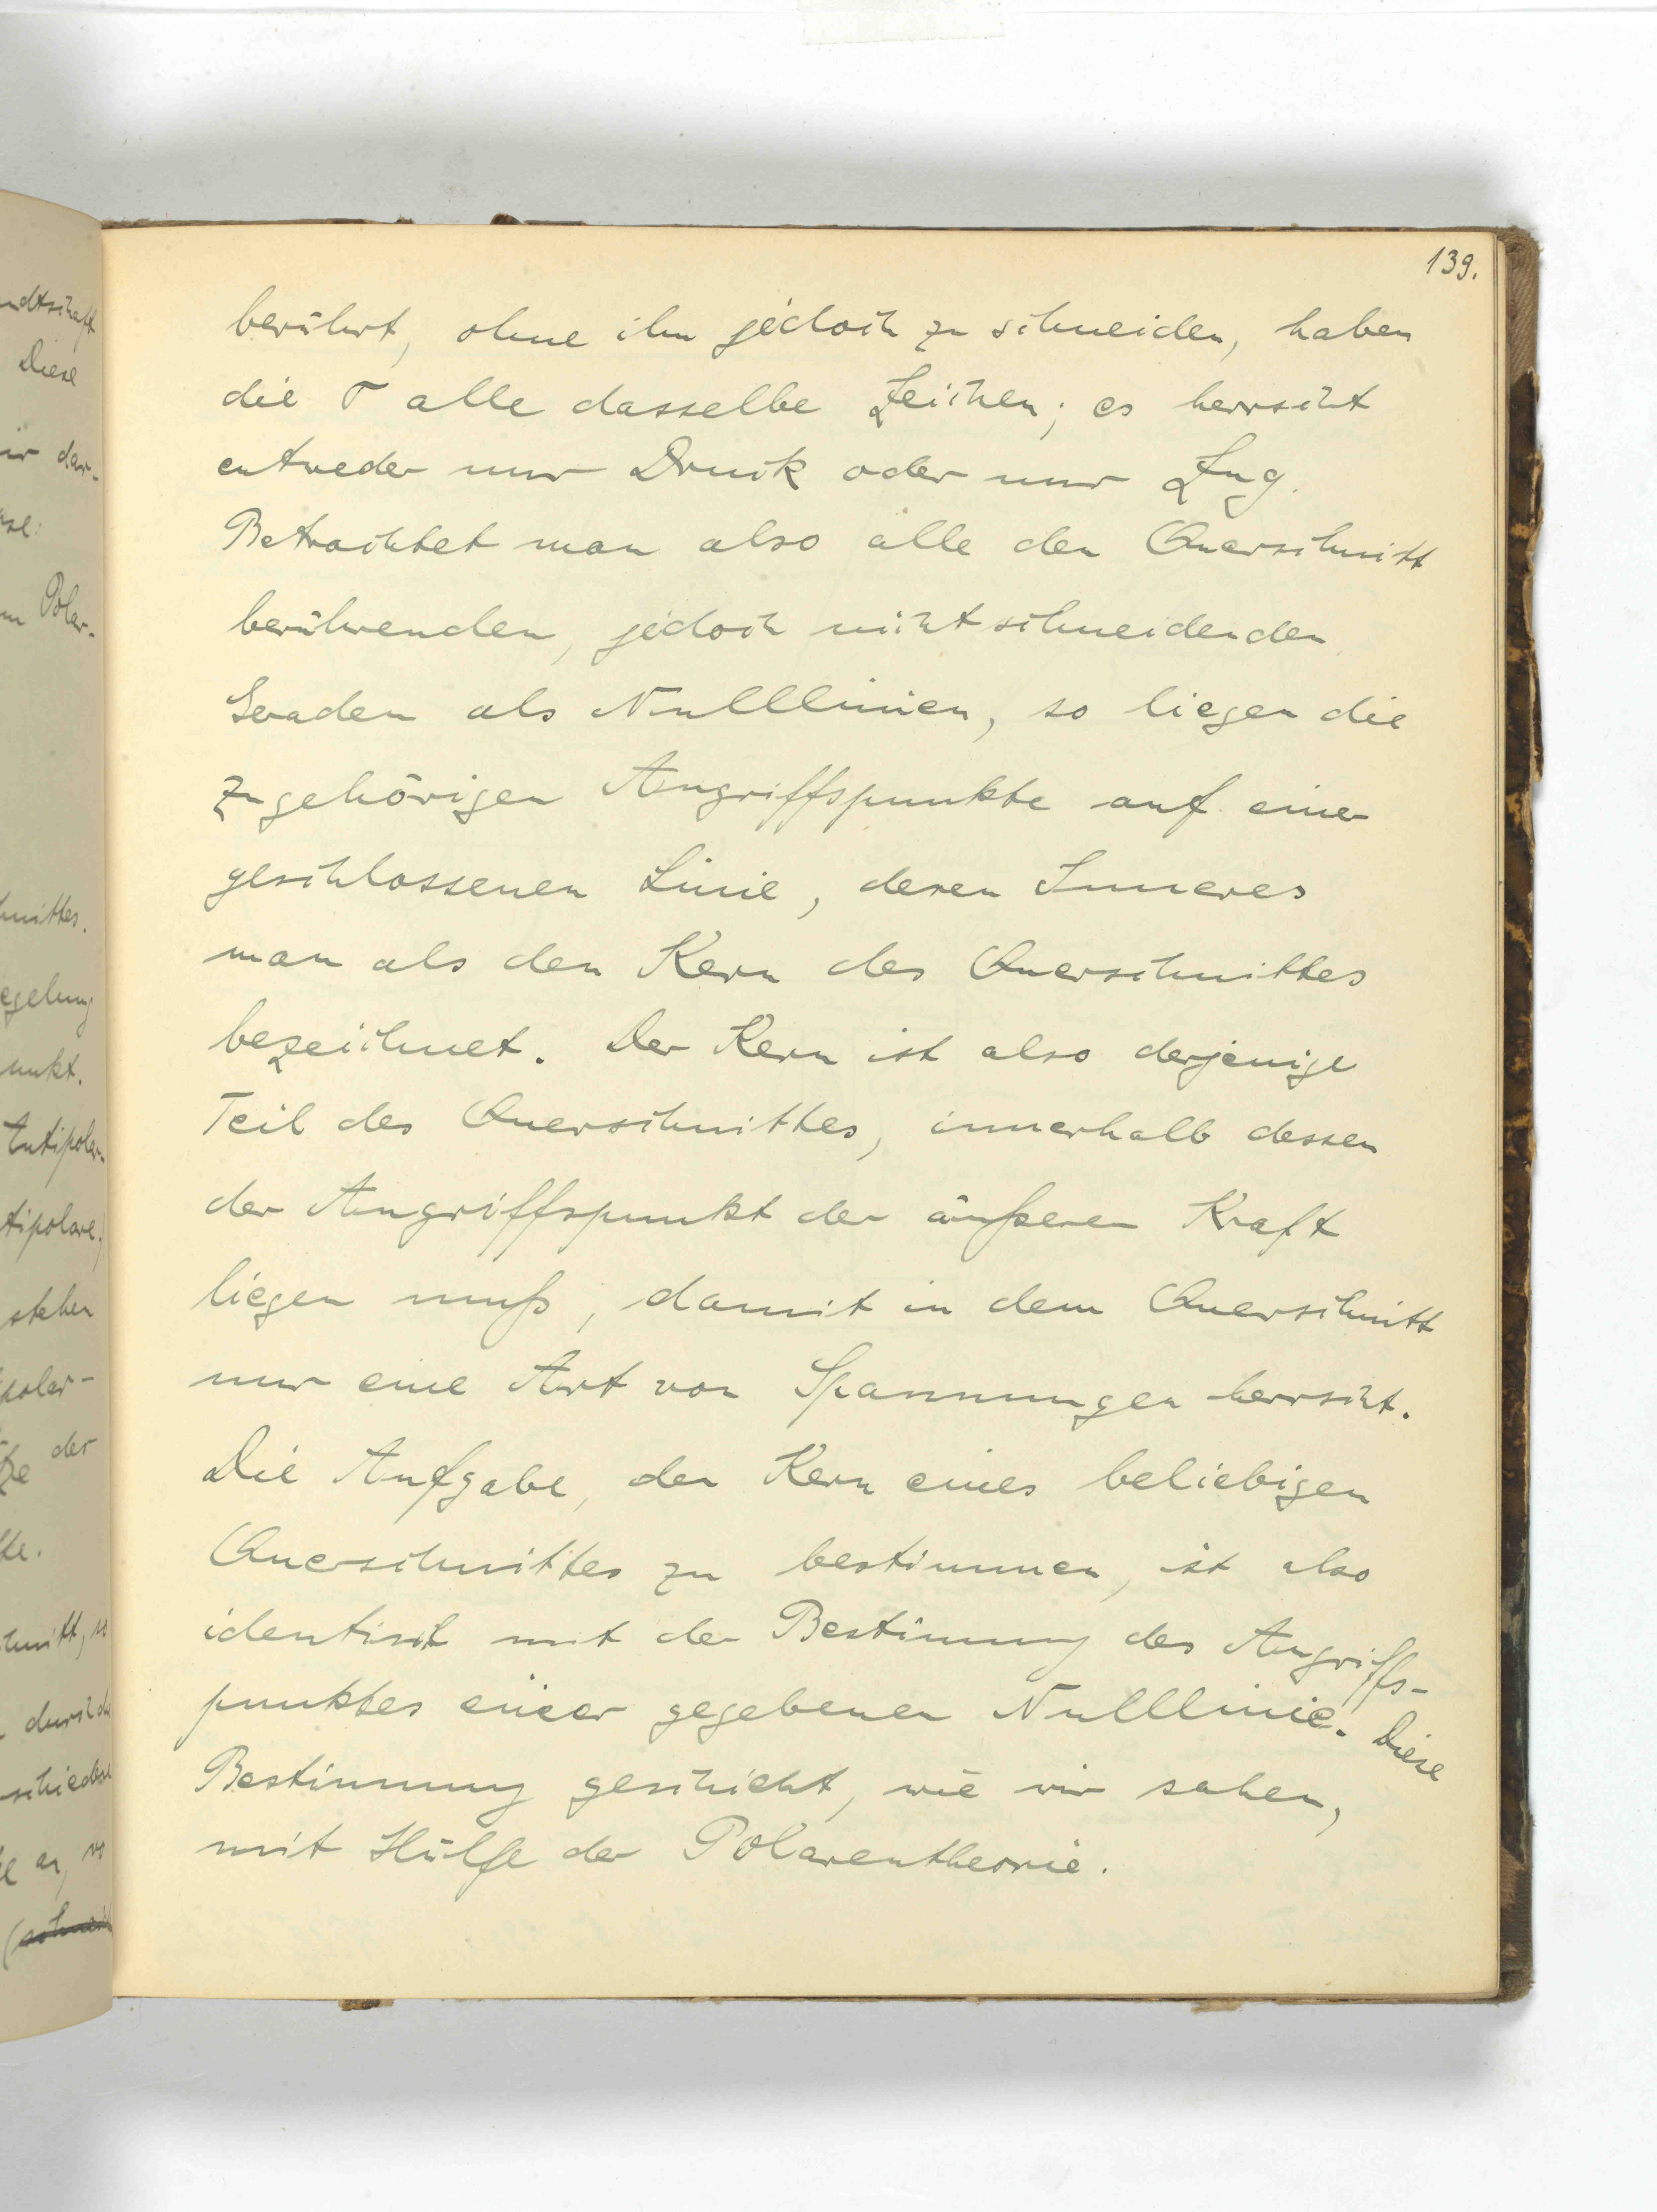 139.
berührt, ohne ihn jedoch zu schneiden, haben
die σ alle dasselbe Zeichen; es herrscht
entweder nur Druck oder nur Zug.
Betrachtet man also alle den Querschnitt
berührenden, jedoch nicht schneidenden
Geraden als Nulllinien, so liegen die
zugehörigen Angriffspunkte auf einer
geschlossenen Linie, deren Inneres
man als den Kern des Querschnittes
bezeichnet. Der Kern ist also derjenige
Teil des Querschnittes, innerhalb dessen
der Angriffspunkt der äußeren Kraft
liegen muß, damit in dem Querschnitt
nur eine Art von Spannungen herrscht.
Die Aufgabe, den Kern eines beliebigen
Querschnittes zu bestimmen, ist also
identisch mit der Bestimmung des Angriffs-
punktes einer gegebenen Nulllinie. Diese
Bestimmung geschieht, wie wir sahen,
mit Hülfe der Polarentheorie.